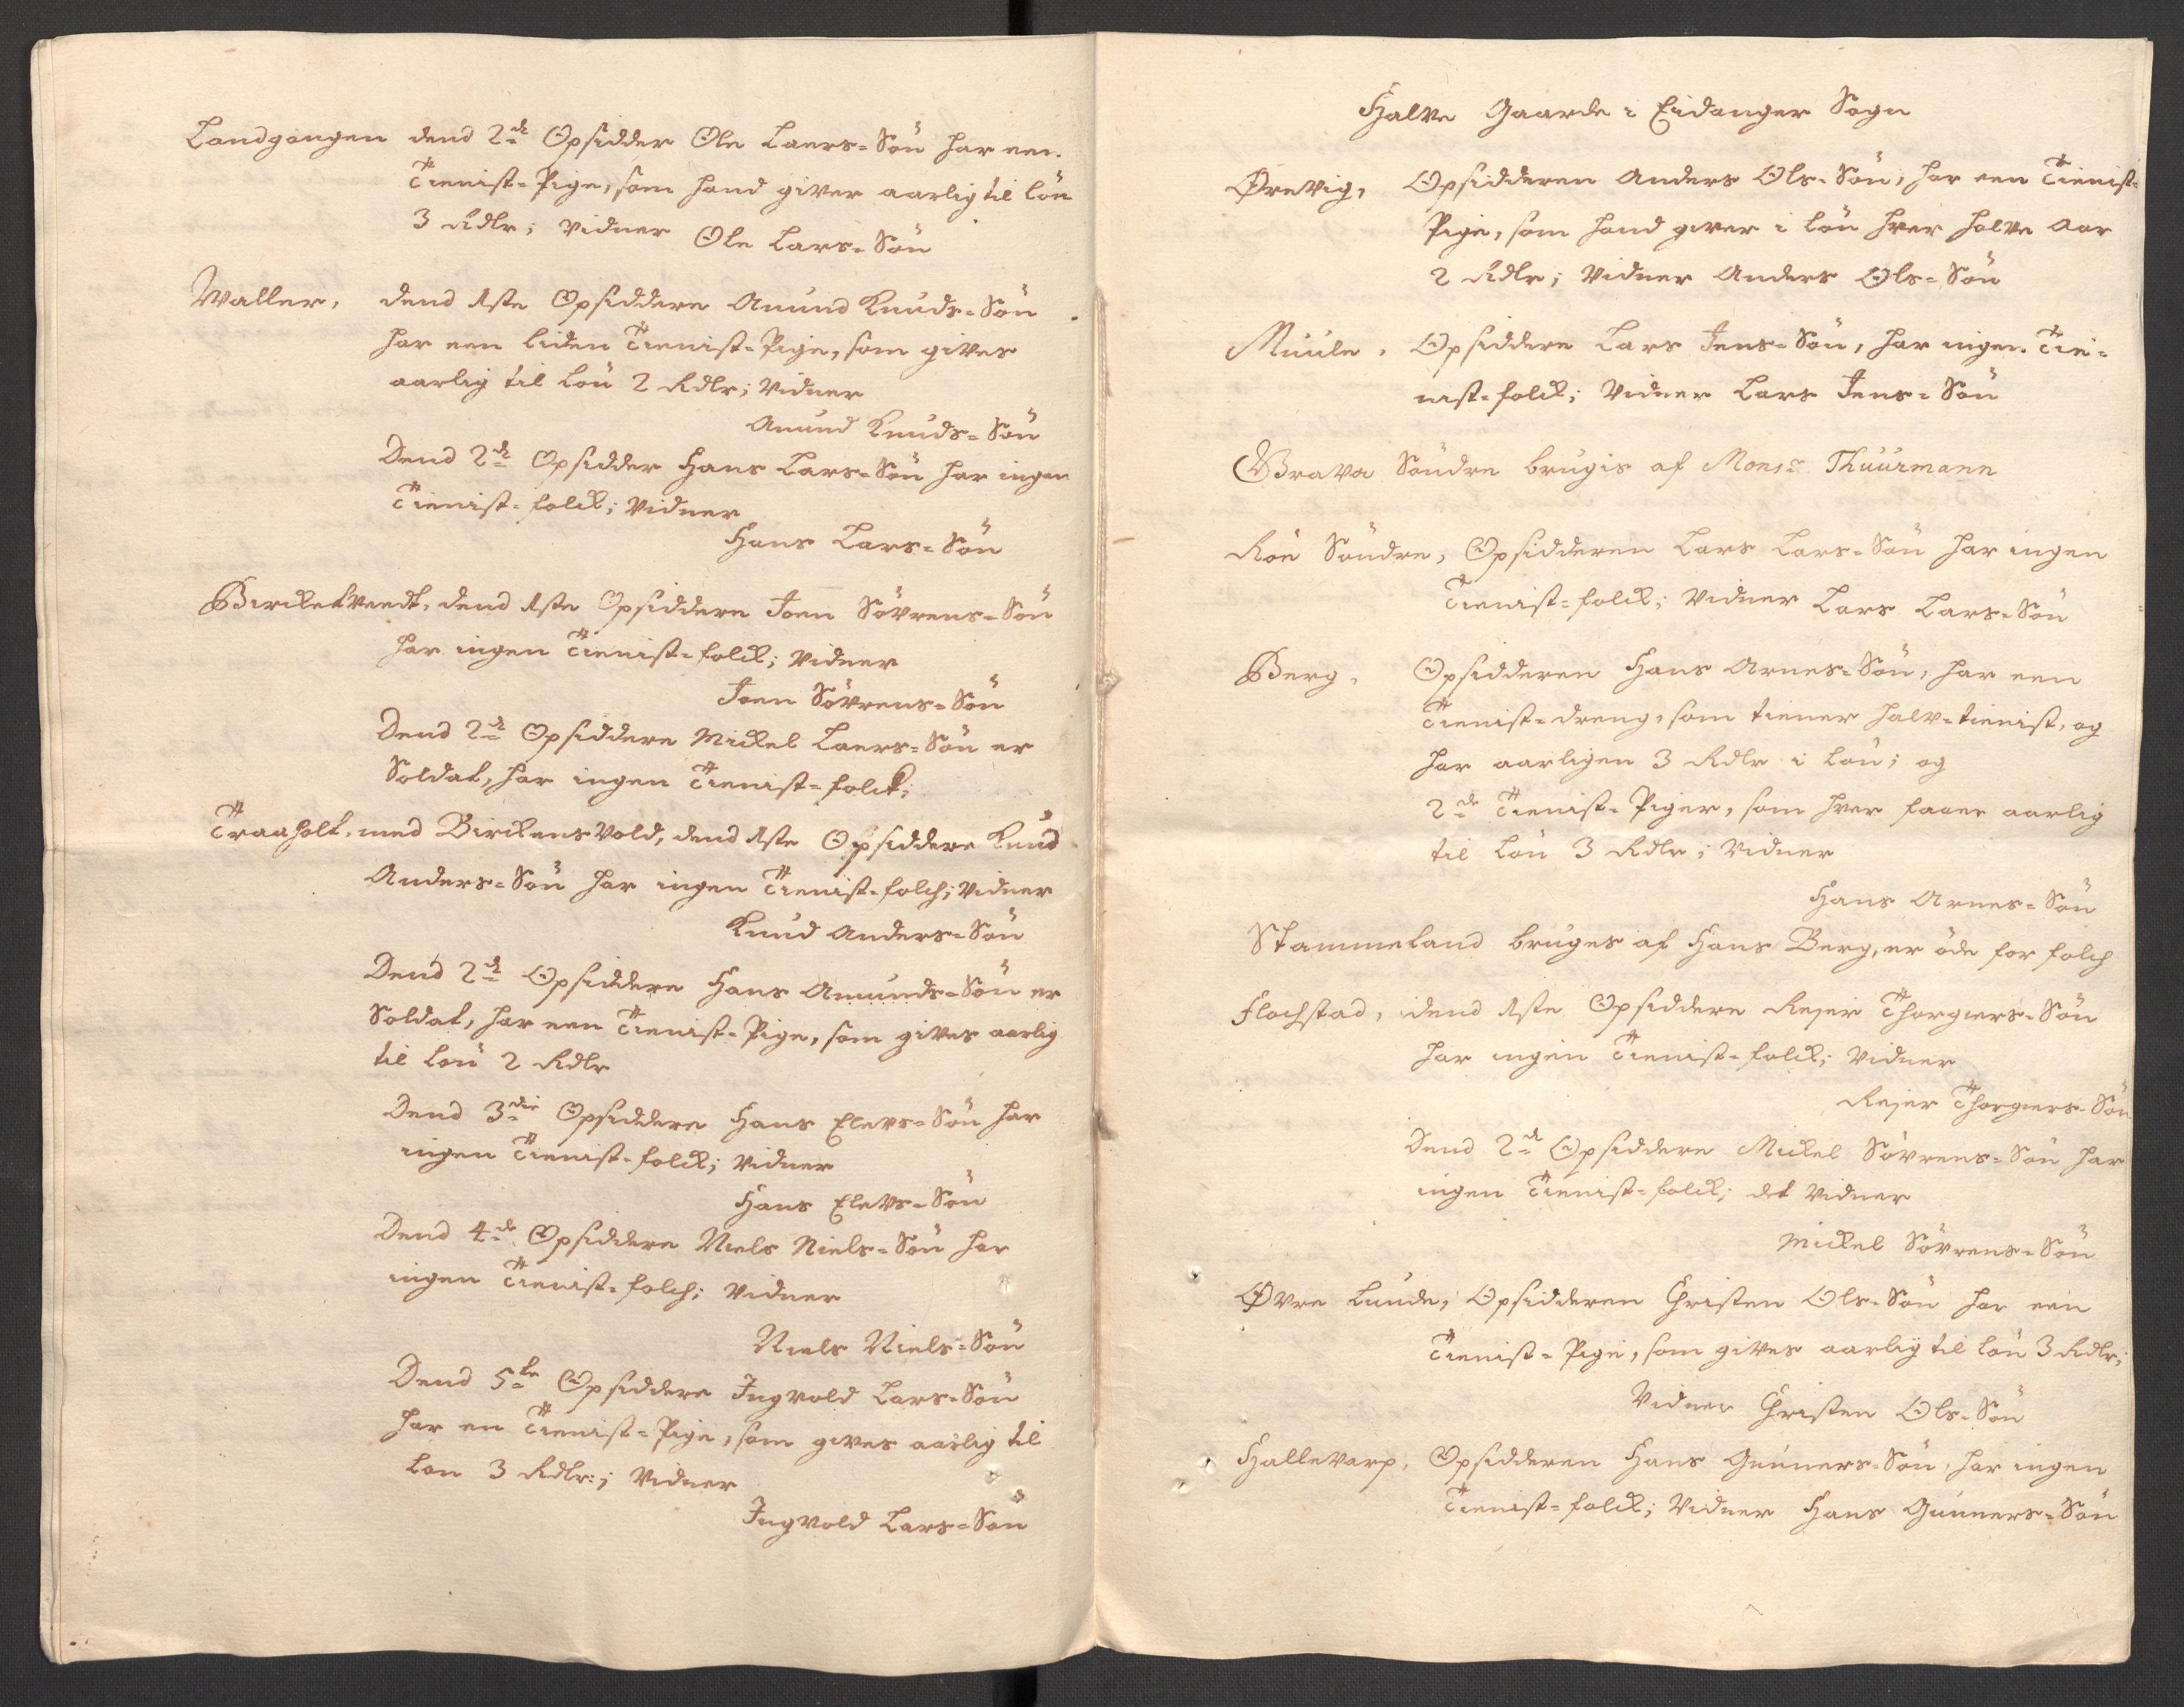 Landgangen dend 2de Opsidder Ole Laers-Sön har een
Tienist-Pige, som hand giver aarlig til Lön
3 Rdlr; Vidner Ole Lars-Sön
Waller, dend 1ste Opsiddere Amund Knuds-Sön
har een liden Tienist-Pige, som gives
aarlig til Lön 2 Rdlr; Vidner
Amund Knuds-Sön
Dend 2de Opsidder Hans Lars-Sön har ingen
Tienist-folck; Vidner
Hans Lars-Sön
Birketvedt, dend 1ste Opsiddere Joen Sövrens-Sön
har ingen Tienist-folck; Vidner
Joen Sövrens-Sön
Dend 2de Opsiddere Mickel Laers-Sön er
Soldat, har ingen Tienist-folck;
Traaholt, med Birckensvold, dend 1ste Opsiddere Knud
Anders-Sön har ingen Tienist-folch; Vidner
Knud Anders-Sön
Dend 2de Opsiddere Hans Amunds-Sön er
Soldat, har een Tienist-Pige, som gives aarlig
til Lön 2 Rdlr
Dend 3die Opsiddere Hans Elevs-Sön har
ingen Tienist-folck; Vidner
Hans Elevs-Sön
Dend 4de Opsiddere Niels Niels-Sön har
ingen Tienist-folch; Vidner
Niels Niels-Sön
Dend 5te Opsiddere Ingvold Lars-Sön
har en Tienist-Pige, som gives aarlig til
Lön 3 Rdlr:; Vidner
Ingvold Lars-Sön
Halve Gaarde i Eidanger Sogn
Ørevig, Opsidderen Anders Ols-Sön, har een Tienist-
Pige, som hand giver i Lön hver halve Aar
2 Rdlr; Vidner Anders Ols-Sön
Müüle, Opsiddere Lars Jens-Sön, har ingen Tie-
nist-folck; Vidner Lars Jens-Sön
Grava Söndre brugis af Monsr Thuurmann
Röe Söndre, Opsidderen Lars Lars-Sön har ingen
Tienist-folck; Vidner Lars Lars-Sön
Berg, Opsidderen Hans Arnes-Sön, har een
Tienist-dreng, som tiener halv-tienist, og
har aarligen 3 Rdlr i Lön; og
2de Tienist-Piger, som hver faaer aarlig
til Lön 3 Rdlr; Vidner
Hans Arnes-Sön
Stammeland bruges af Hans Berg, er öde for folch
Flachstad, dend 1ste Opsiddere Rejer Thorgiers-Sön
har ingen Tienist-folck; Vidner
Rejer Thorgiers-Sön
Dend 2de Opsiddere Mickel Sövrens-Sön har
ingen Tienist-folck; det Vidner
Mickel Sövrens-Sön
Øvre Lunde, Opsidderen Christen Ols-Sön har een
Tienist-Pige, som gives aarlig til Lön 3 Rdlr;
Vidner Christen Ols-Sön
Hallevarp, Opsidderen Hans Gunners-Sön, har ingen
Tienist-folck; Vidner Hans Gunners-Sön